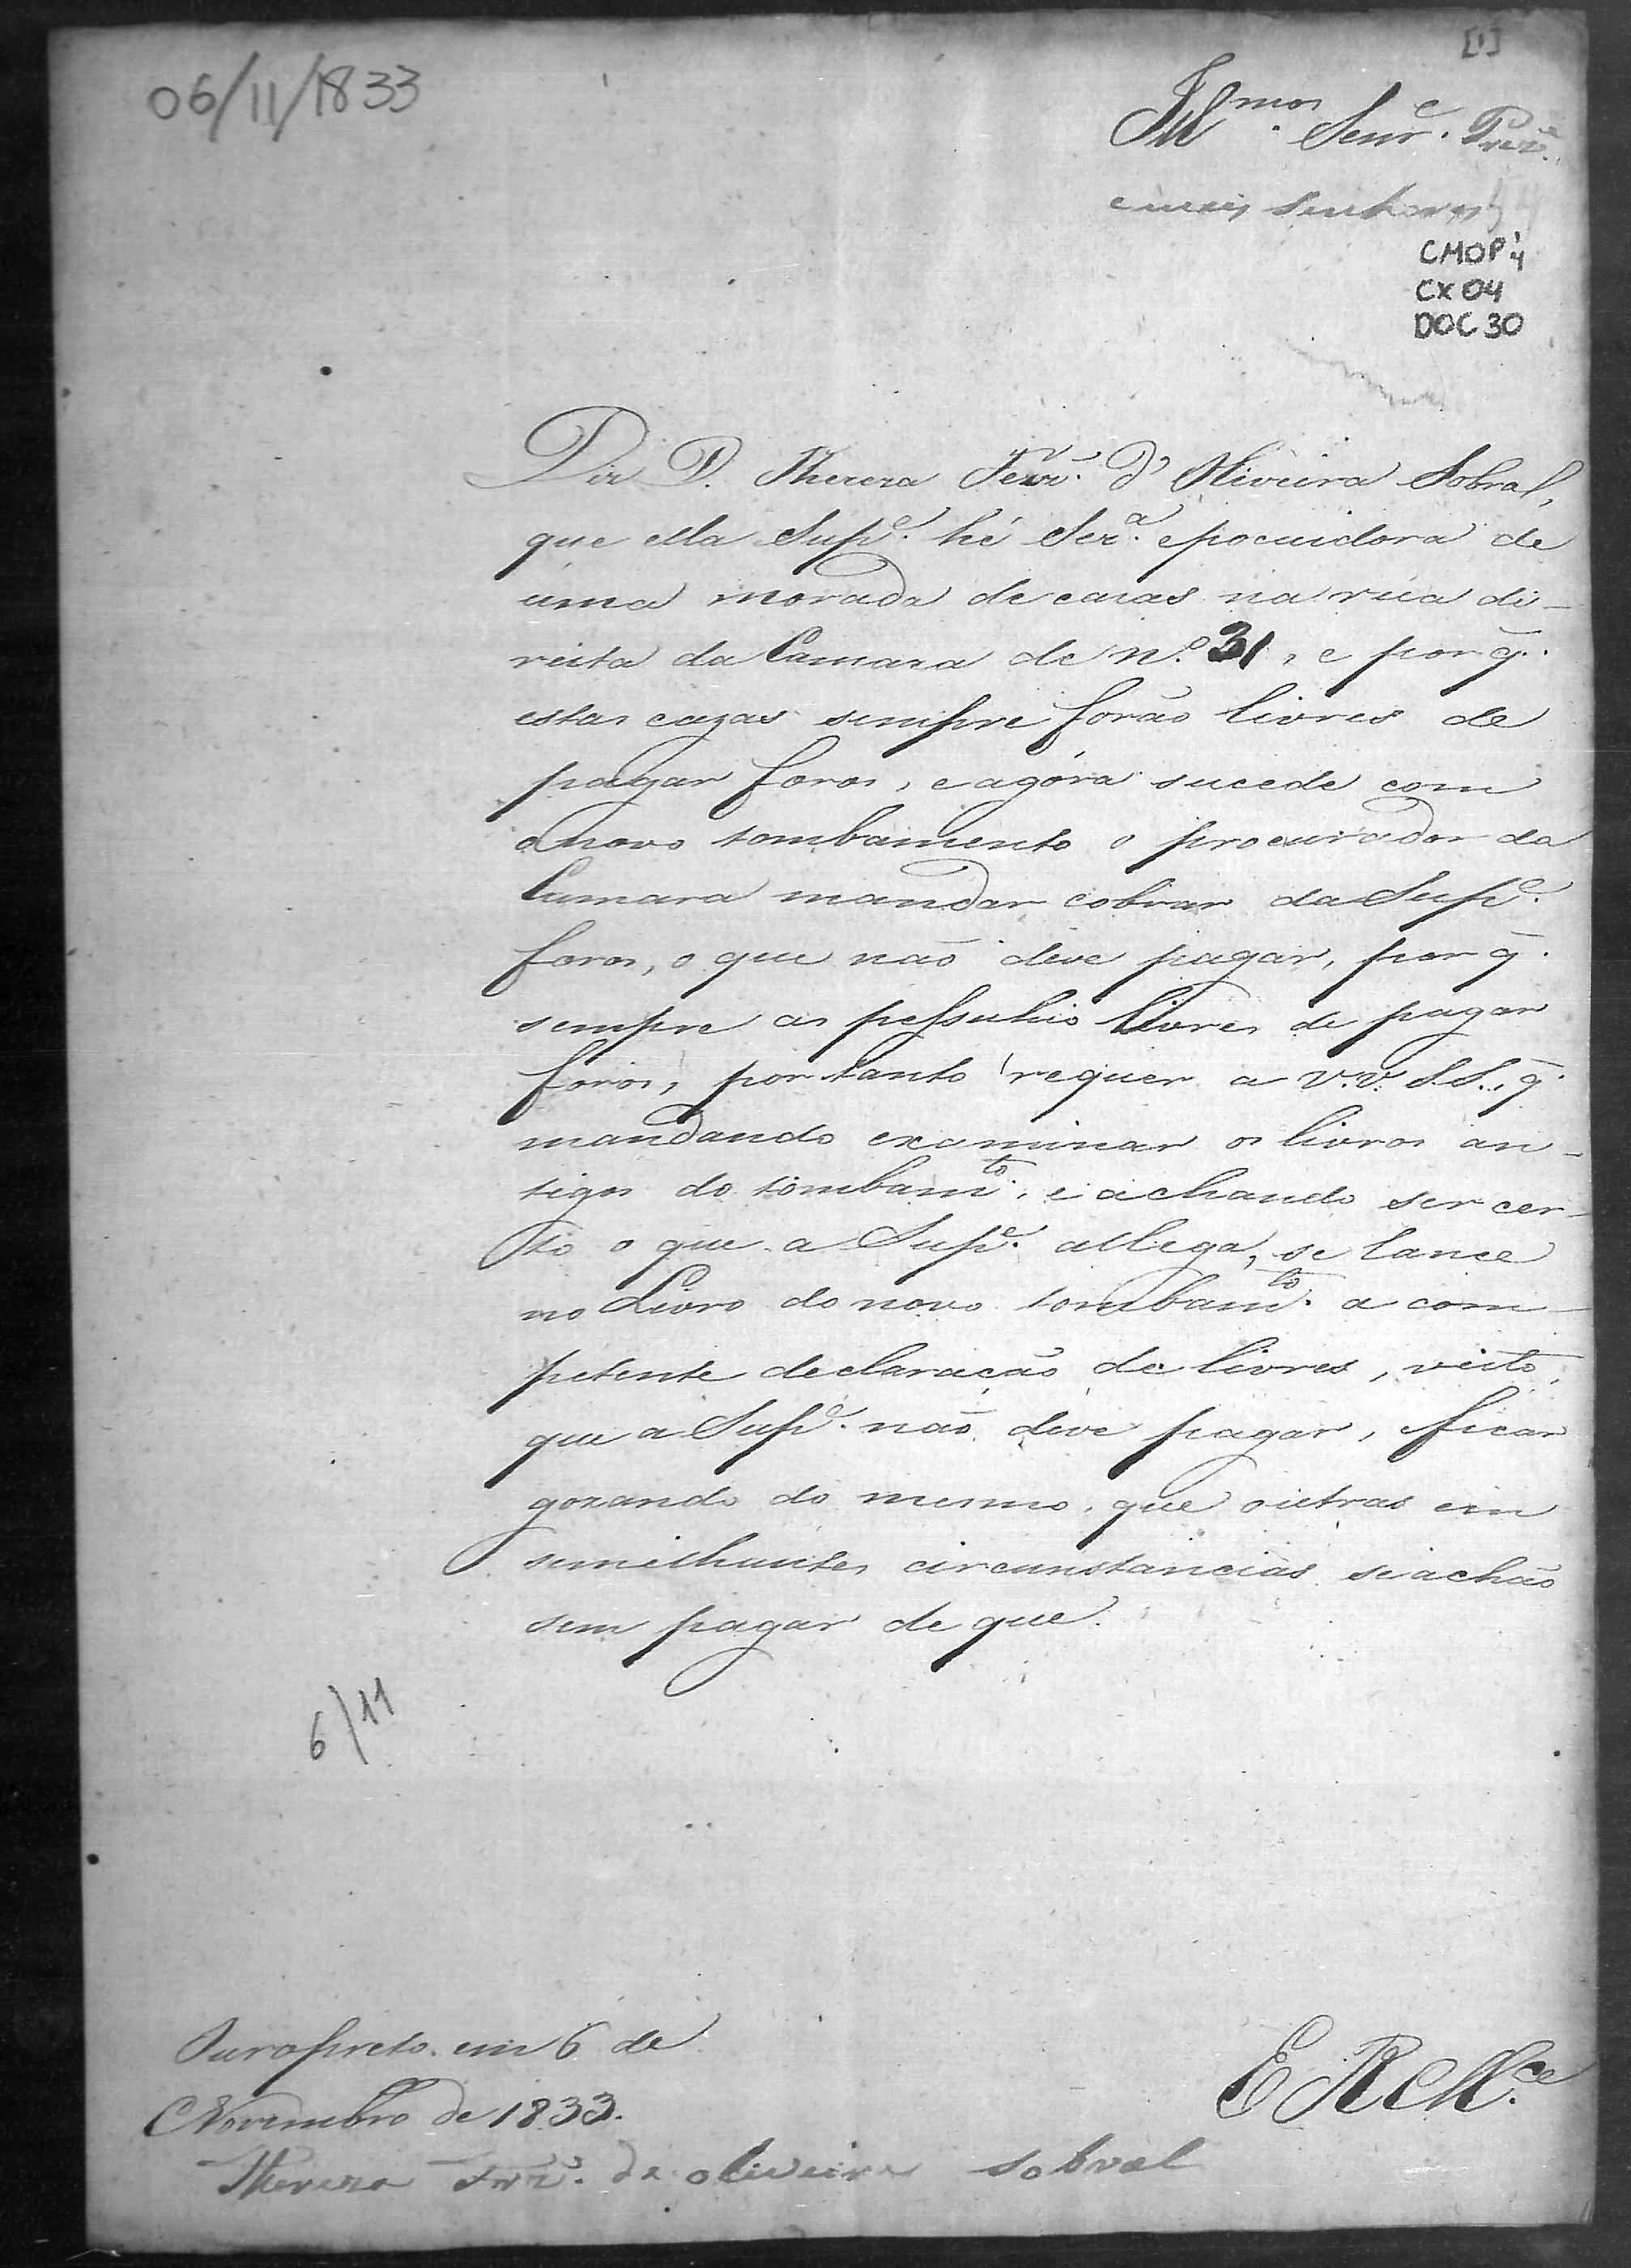 [1]
06/11/1833
Ill.mos Senr.e Prez.e
e mais Senhores
CMOP 4
CX 04
DOC 30
Diz D. Thereza Ferr.ª d'Oliveira Sobral,
que ella Sup.e hé Snr.a epocuidora de
uma morada de cazas na rua di-
reita da Camara de N.o 31, e por q̃.
estas cazas sempre forão livres de
pagar foros, e agóra sucede com
o novo tombamento o procurador da
Camara mandar cobrar da Sup.e
foros, o que não deve pagar, por q̃.
sempre as pessuhio livres de pagar
foros, portanto requer a V.V. S.S., q̃.
mandando examinar os livros an-
tigos do tombam.to, e achando ser cer-
to o que a Sup.e allega, se lance
no Livro do novo tombam.to a com-
petente declaração de livres, visto
que a Sup.e não deve pagar, e ficar
gozando do mesmo, que outras em
semilhantes circunstancias se achão
sem pagar de que
6/11
Ouropreto em 6 de
Novembro de 1833.
E R M.ce
Thereza Frr.ª de oliveira Sobral